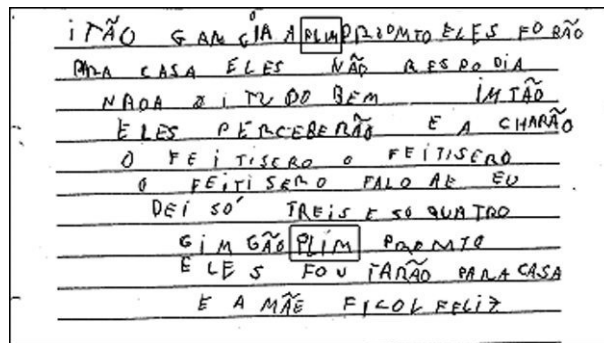 ITÃO GANGIA A PLIM PRIOMTO ELES FORÃO
PARA CASA ELES NÃO RESPODIA
NADA DITUDO BEM IMTÃO
ELES PERCEBERÃO E A CHARÃO
O FEITISERO O FEITISERO
O FEITISERO FALO AE EU
DEI SÓ TREIS E SÓ QUATRO
GIMGÃO PLIM PROMTO
ELES FOUTARÃO PARA CASA
E A MÃE FICOL FELIZ